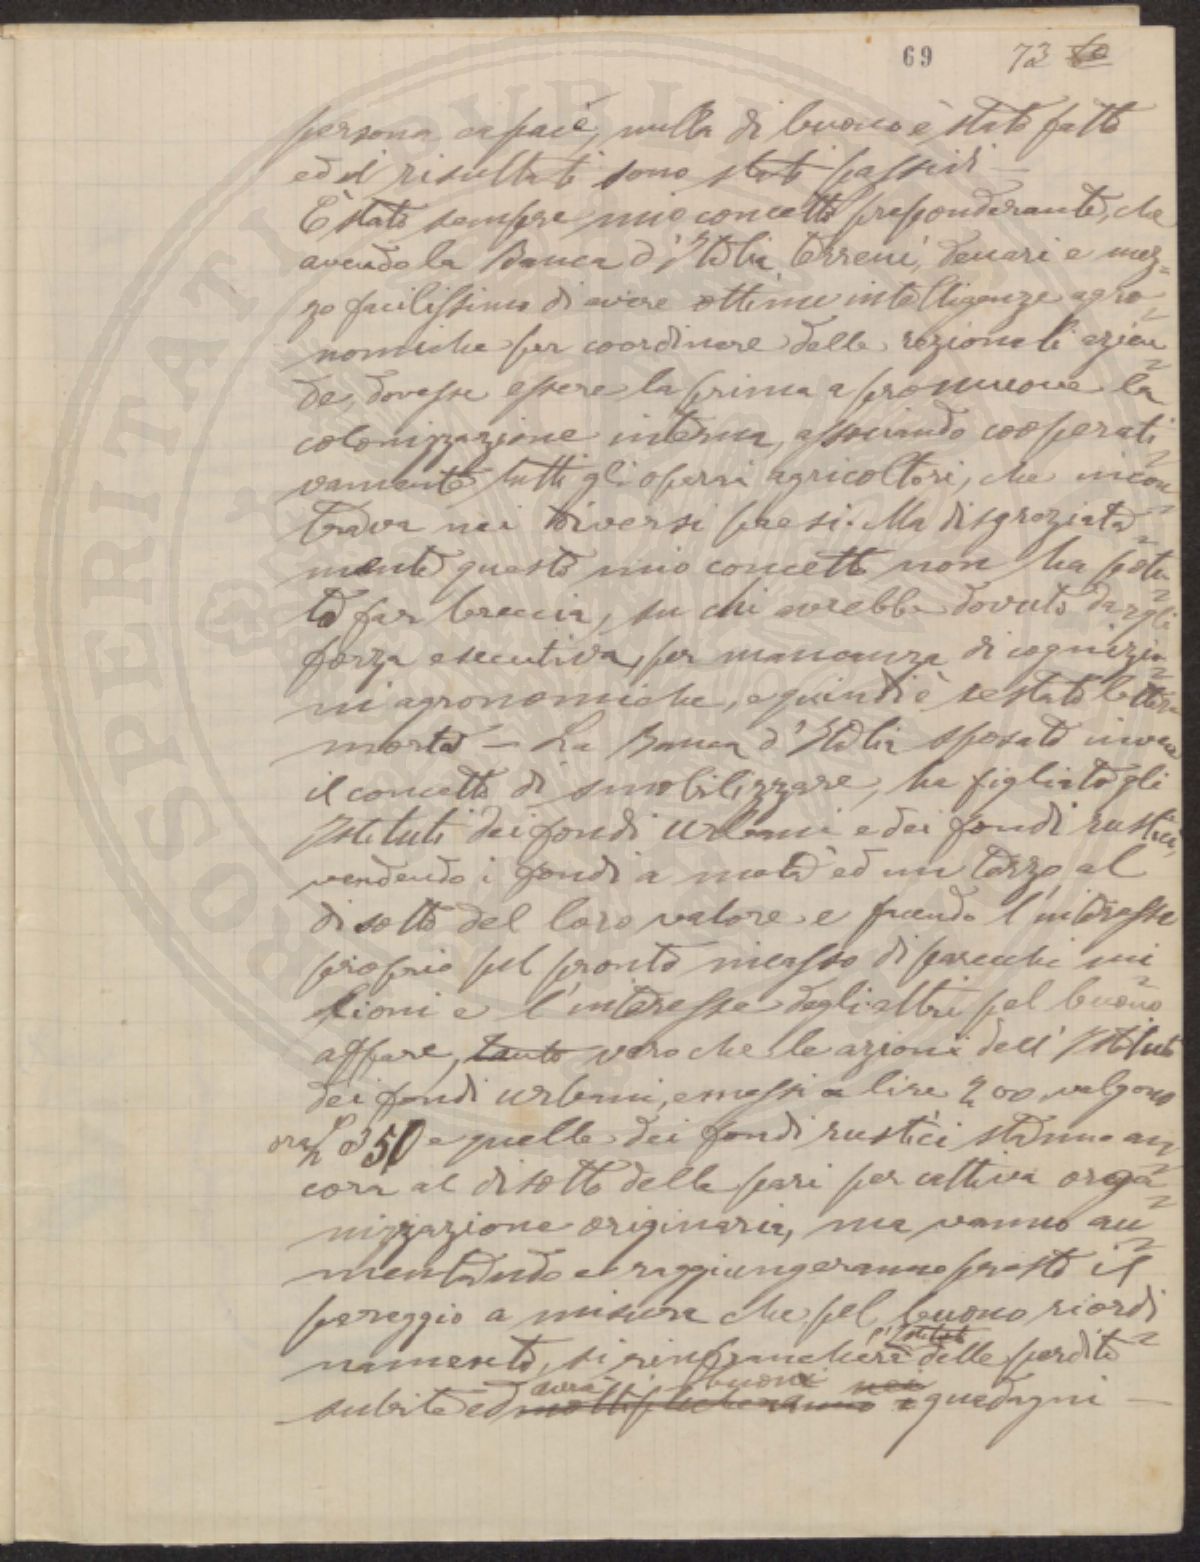 69 73 60
persona capace, nulla di buono è stato fatto
ed i risultati sono stati passivi —
È stato sempre mio concetto preponderante, che
avendo la Banca d'Italia terreni, denari e mez=
zo facilissimo di avere ottime intelligenze agro=
nomiche per coordinare delle razionali azien=
de, dovesse essere la prima a promuove la
colonizzazione interna, associando cooperati=
vamente tutti gli operai agricoltori, che incon=
trava nei diversi paesi. Ma disgraziata=
mente questo mio concetto non ha potu=
to far breccia, su chi avrebbe dovuto dargli
forza esecutiva, per mancanza di cognizio=
ni agronomiche, e quindi è restato lettera
morta — La Banca d'Italia sposato invece
il concetto di smobilizzare, ha figliato gli
Istituti dei fondi urbani e dei fondi rustici,
vendendo i fondi a metà ed un terzo al
disotto del loro valore e facendo l'interesse
proprio pel pronto incasso di parecchi mi=
lioni e l'interesse degli altri pel buono
affare, tanto vero che le azioni dell'Istituto
dei fondi urbani, emessi a lire 200, valgono
ora £ 350 e quelle dei fondi rustici stanno an=
cora al disotto della pari per cattiva orga=
nizzazione originaria, ma vanno au=
mentando e raggiungeranno presto il
pareggio a misura che pel buono riordi=
namento, si rinfrancherà l'Istituto delle perdite
subite ed avrà buoni moltiplicheranno nei i guadagni —
PROSPERITATI